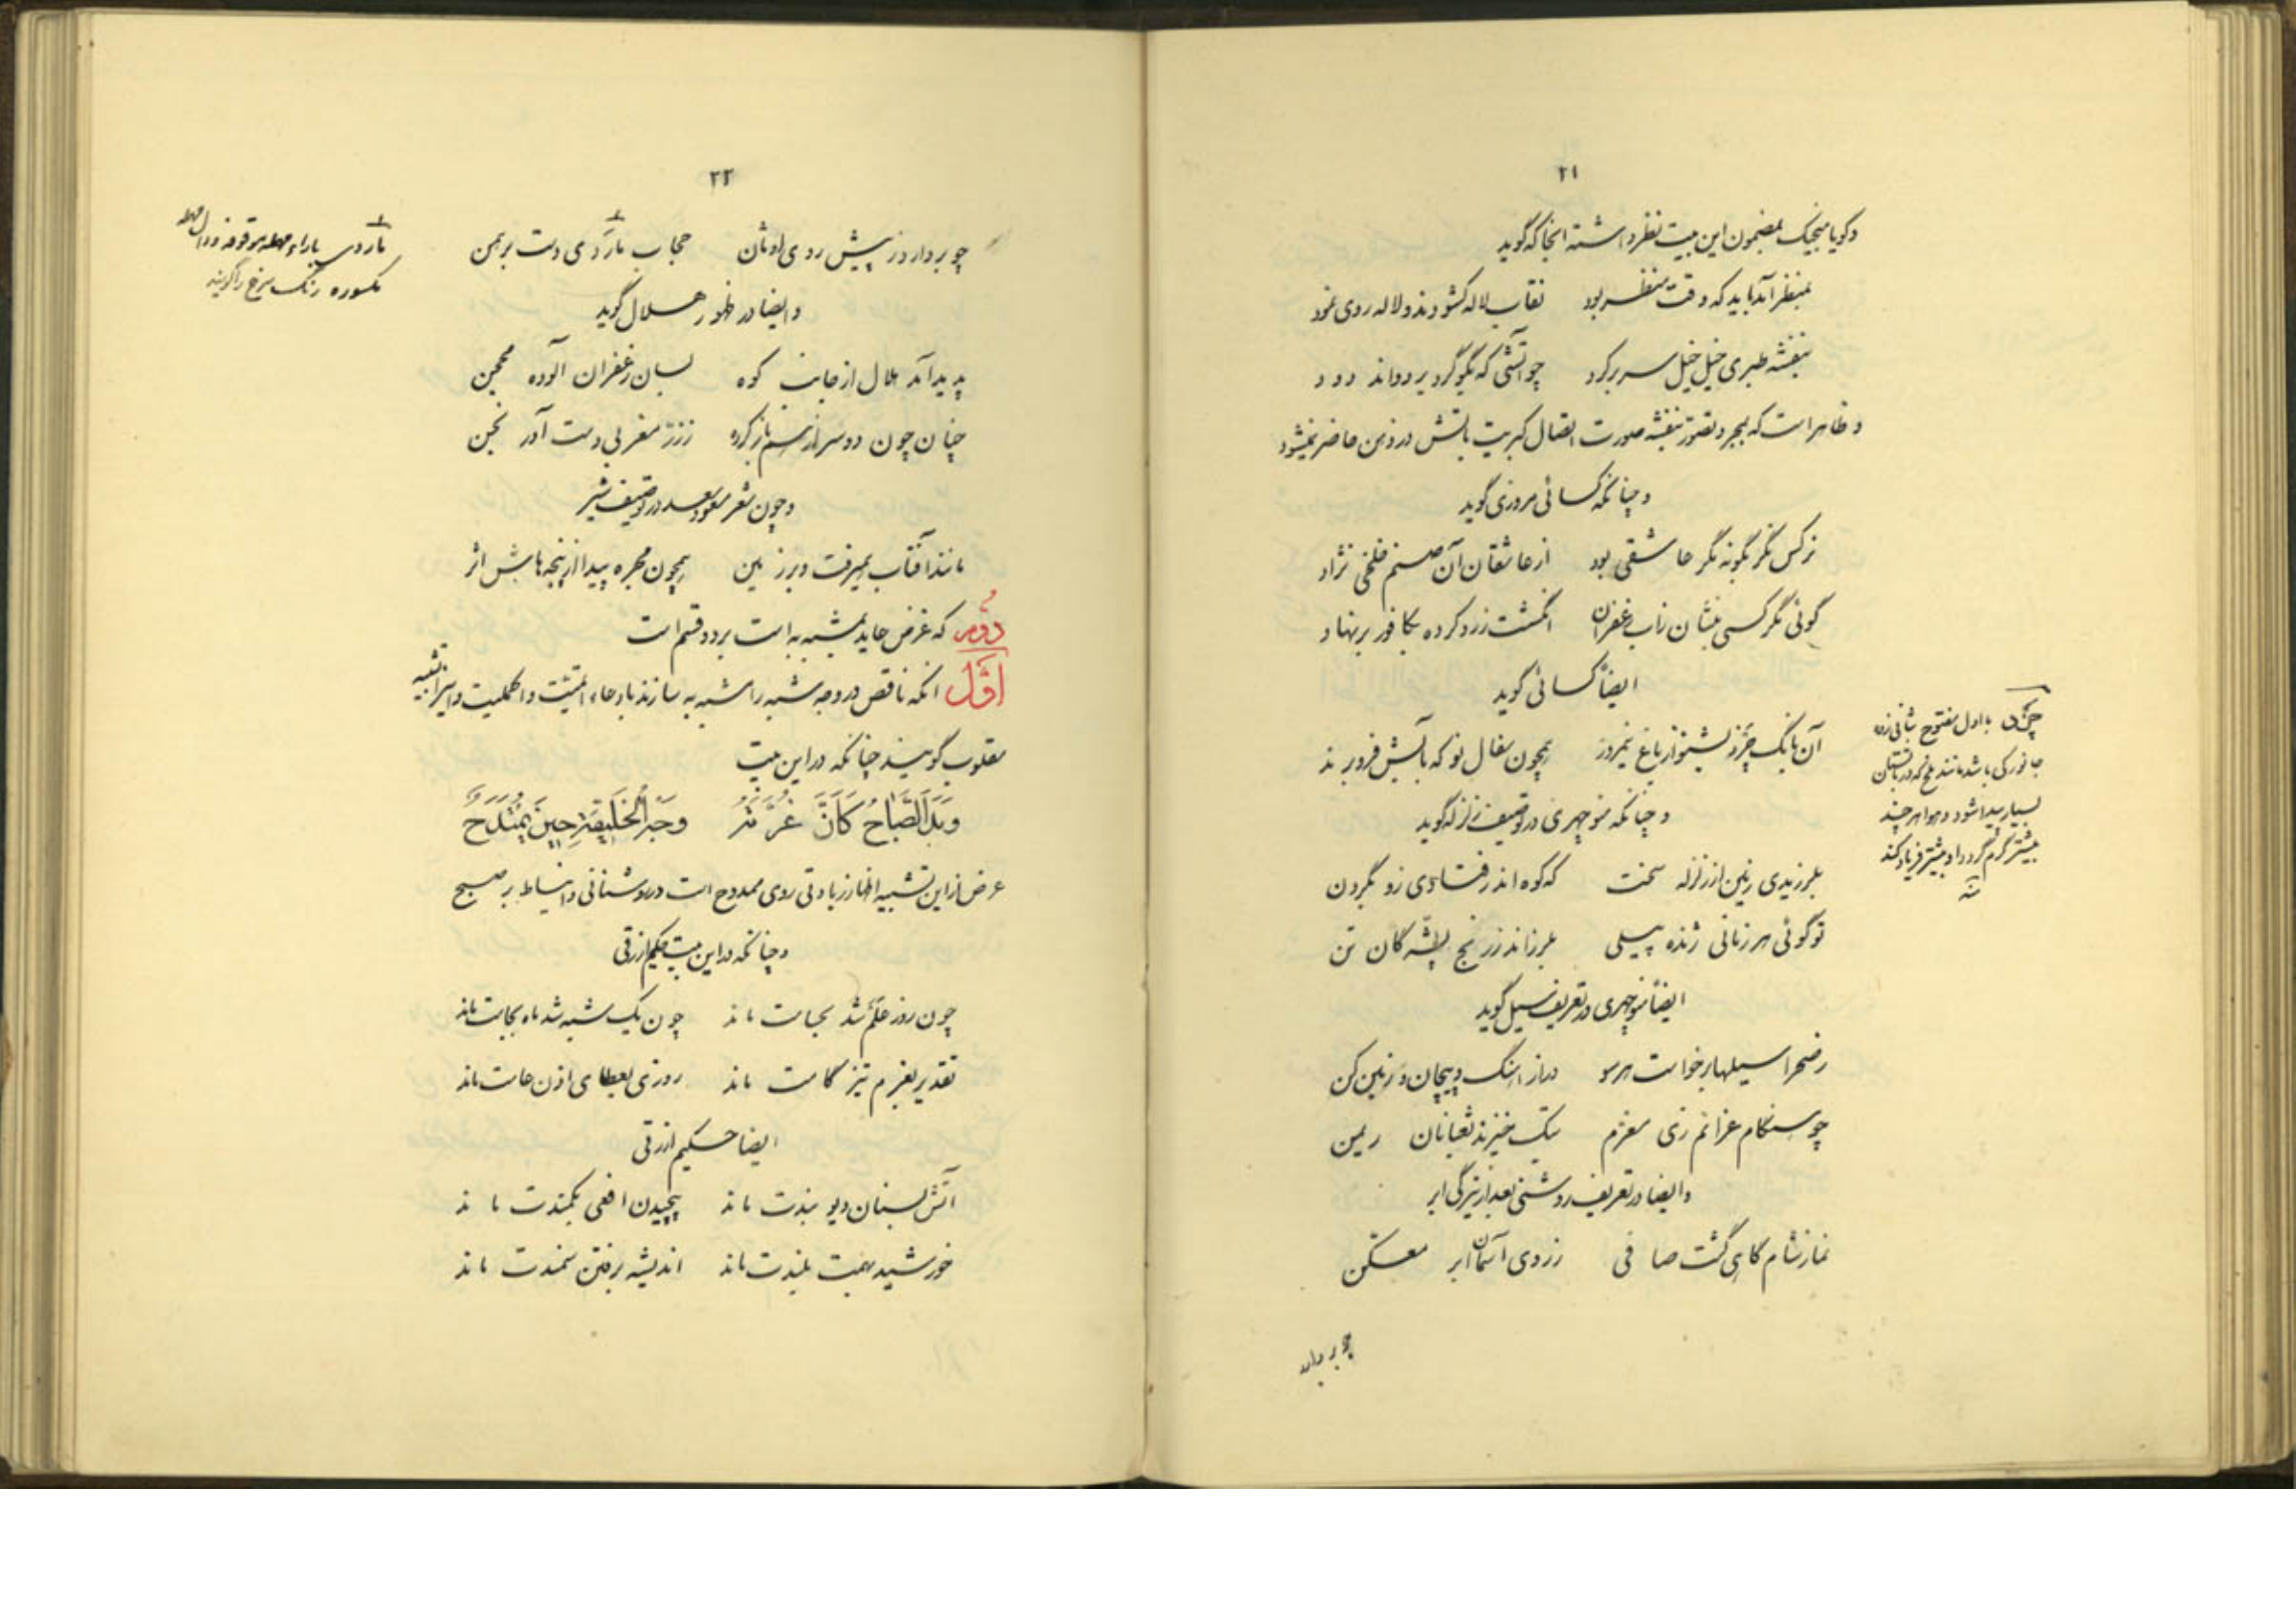 ۲۱
و گویا منجیک بمضمون این بیت نظر داشته انجا که گوید
بمنظر آمد باید که وقت منظر بود    نقاب لاله کشودند و لاله روی نمود
بنفشه طبری خیل خیل سر بر کرد    چو آتشی که بگوگرد بر دواند دود
و ظاهر است که بمجرد تصور بنفشه صورت اتصال کبریت باتش در ذهن حاضر نمیشود
و چنانکه کسائی مروزی گوید
نرکس نگر بگونه نگر عاشقی بود    از عاشقان آن صنم خلخی نژاد
گوئی مگر کسی بنشان ز اب زعفران    انگشت زرد کرده بکافور بر نهاد
ایضاً کسائی گوید
آن بانگ چزد بشنو از باغ نیمروز    همچون سفال نو که بآبش فرو برند
و چنانکه منوچهری در توصیف زلزله گوید
بلرزیدی زمین از زلزله سخت    که کوه اندر فتادی زو بگردن
تو گوئی هر زمانی ژنده پیلی    بلرزاند ز رنج پشه گان تن
ایضاً منوچهری در تعریف سیل گوید
ز صحرا سیلها برخاست هر سو    دراز اهنگ و پیچان و زمین کن
چو هنگام عزائم زی معزم    بتک خیزند ثعبانان ریمن
و ایضا در تعریف روشنی بعد از تیرگی ابر
نماز شام گاهی گشت صافی    ز روی آسمان ابر معسکن
چو بردارد
چزد با اول مفتوح بثانی زده
جانورکی باشد مانند ملخ که در تابستان
بسیار پیدا شود و هوا هر چند
بیشتر گرم گردد او بیشتر فریاد کند
۲۲
چو بردارد ز پیش روی اوثان    حجاب ماردی دست برهمن
و ایضا در ظهور هلال گوید
پدید آمد هلال از جانب کوه    بسان زعفران آلوده محجن
چنان چون دو سر از هم باز کرده    ز زر مغربی دست آورنجن
و چون شعر مسعود سعد در توصیف شیر
مانند آفتاب همیرفت و بر زمین    همچون مجره پیدا از پنجه هاش اثر
دوم که غرض عاید بمشبه به است بر دو قسم است
اول انکه ناقص در وجه شبه را مشبه به سازند بادعاء اتمیت و اکملیت و اینرا تشبیه
مقلوب گویند چنانکه در این بیت
وَبَدَا الصَّبَاحُ كَأَنَّ غُرَّتَهُ    وَجْهُ الْخَلِيفَةِ حِينَ يُمْتَدَحُ
غرض از این تشبیه اظهار زیادتی روی ممدوح است در روشنائی و انبساط بر صبح
و چنانکه در این بیت حکیم ازرقی
چون روز علم شد بحسامت ماند    چون یک شبه شد ماه بجامت ماند
تقدیر بعزم تیز گامت ماند    روزی بعطای دادن عامت ماند
ایضا حکیم ازرقی
آتش بسنان دیو بندت ماند    پیچیدن افعی بکمندت ماند
خورشید بهمت بلندت ماند    اندیشه برفتن سمندت ماند
ماردی براء مهمله موقوفه و دال مهمله
مکسوره رنگ سرخ را گویند